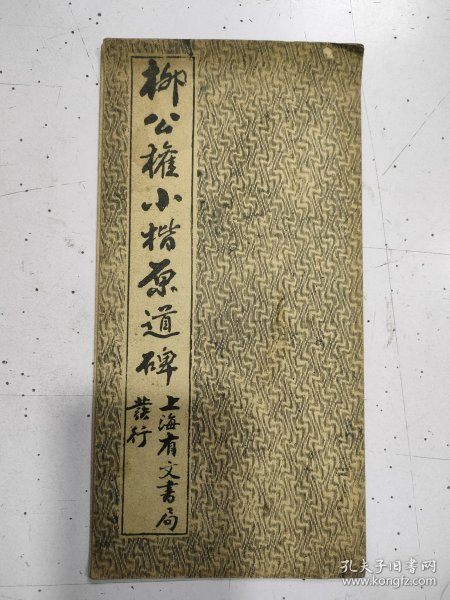 柳公權小楷原道碑
上海有文書局
發行
孔夫子旧书网
www.kongfz.com